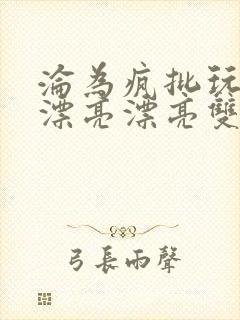 淪為瘋批玩
漂亮漂亮雙
弓長雨聲